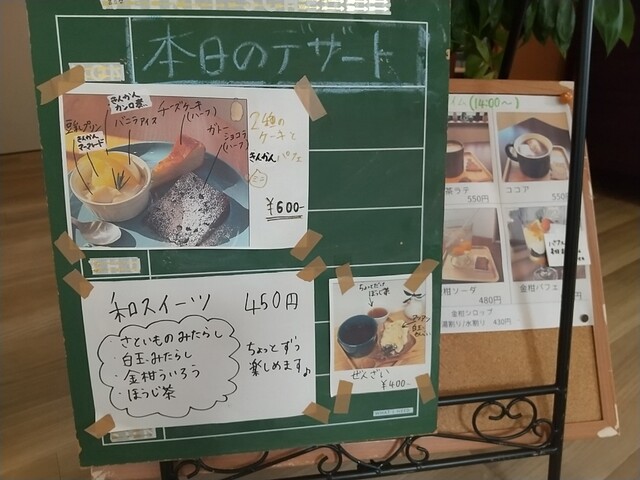 本日のデザート
きんかん
カンロ煮
チーズケーキ
(ハーフ)
豆乳プリン
バニラアイス
ガトー
ショコラ
(ハーフ)
きんかん
マーマレード
2種の
ケーキと
きんかんパフェ
ミニ
¥600-
和スイーツ 450円
・さといものみたらし
・白玉みたらし
・金柑ういろう
・ほうじ茶
ちょっとずつ
楽しめます♪
ちょっとだけ
ほうじ茶
ぜんざい
¥400-
イム(14:00〜)
茶ラテ
550円
ココア
550円
柑ソーダ
480円
金柑パフェ
金柑シロップ
湯割り/水割り 430円